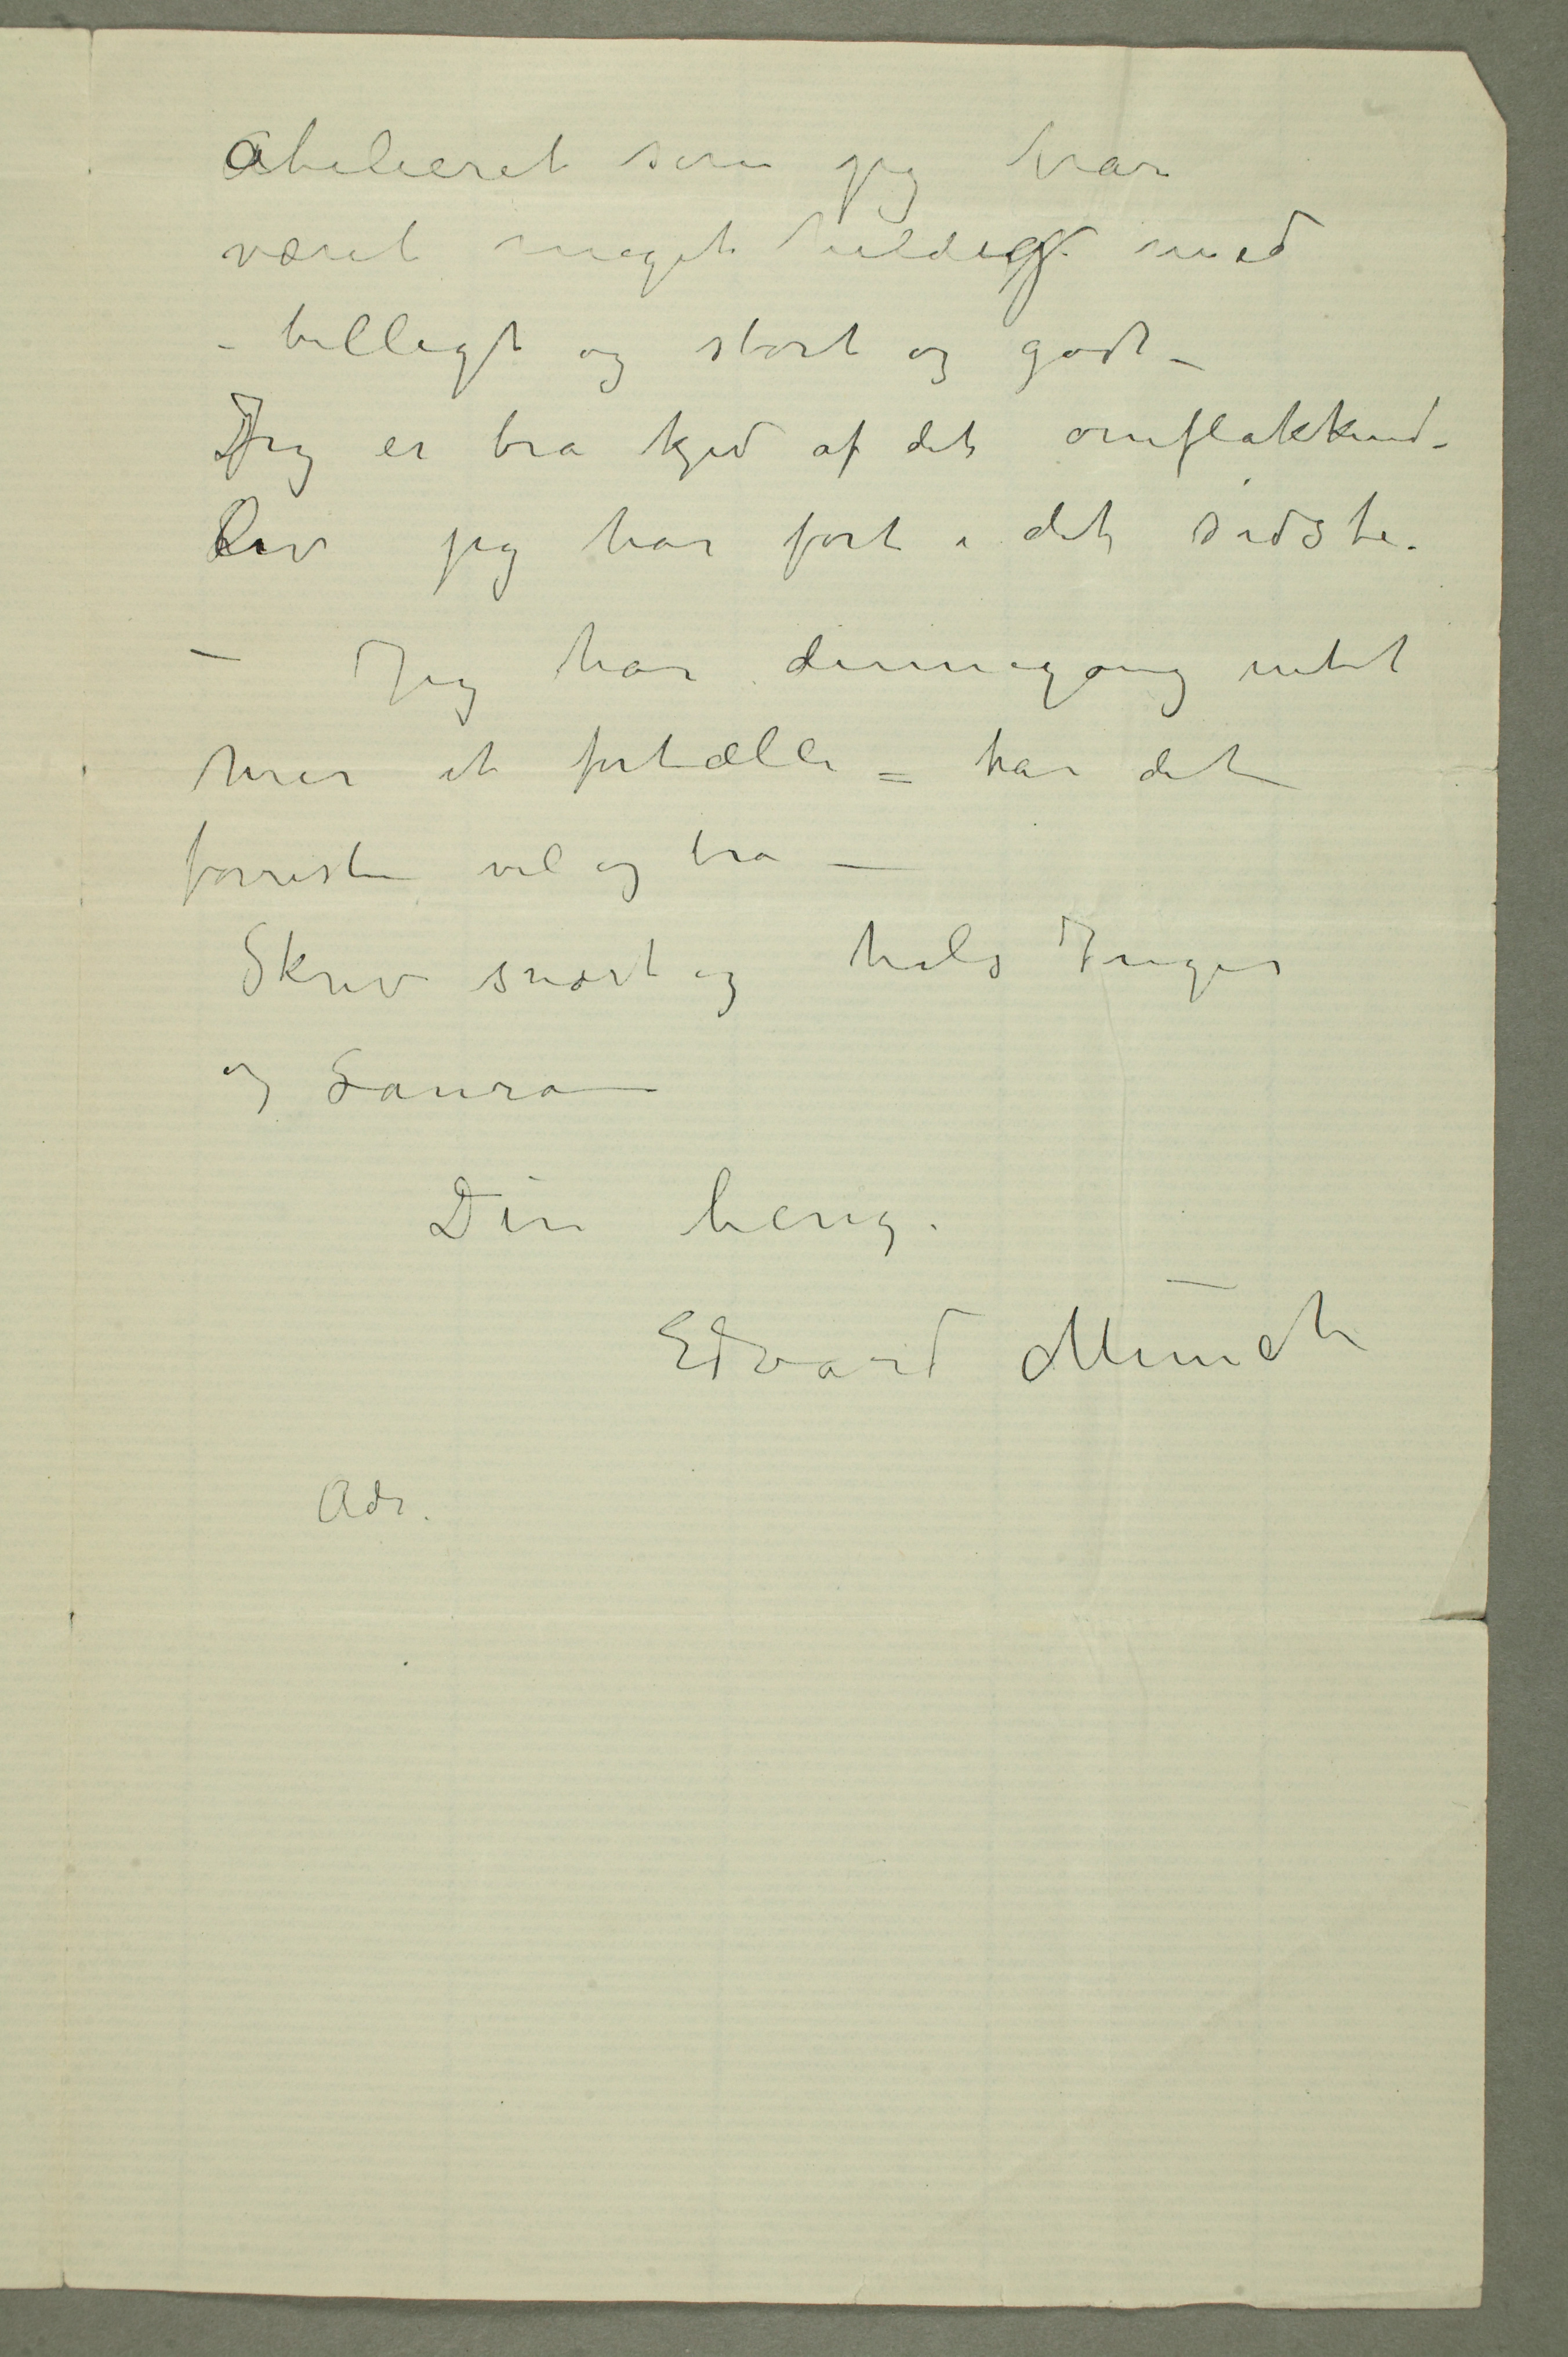 atelieret som jeg har
været meget heldig med
– billigt og stort og godt –
Jeg er bra kjed af det omflakkend-
Liv jeg har ført i det sidste.
– Jeg har dennegang intet
mer at fortælle = har det
forresten vel og bra –
Skriv snart og hils Inger
og Laura –
Din heng.
Edvard Munch
Adr.